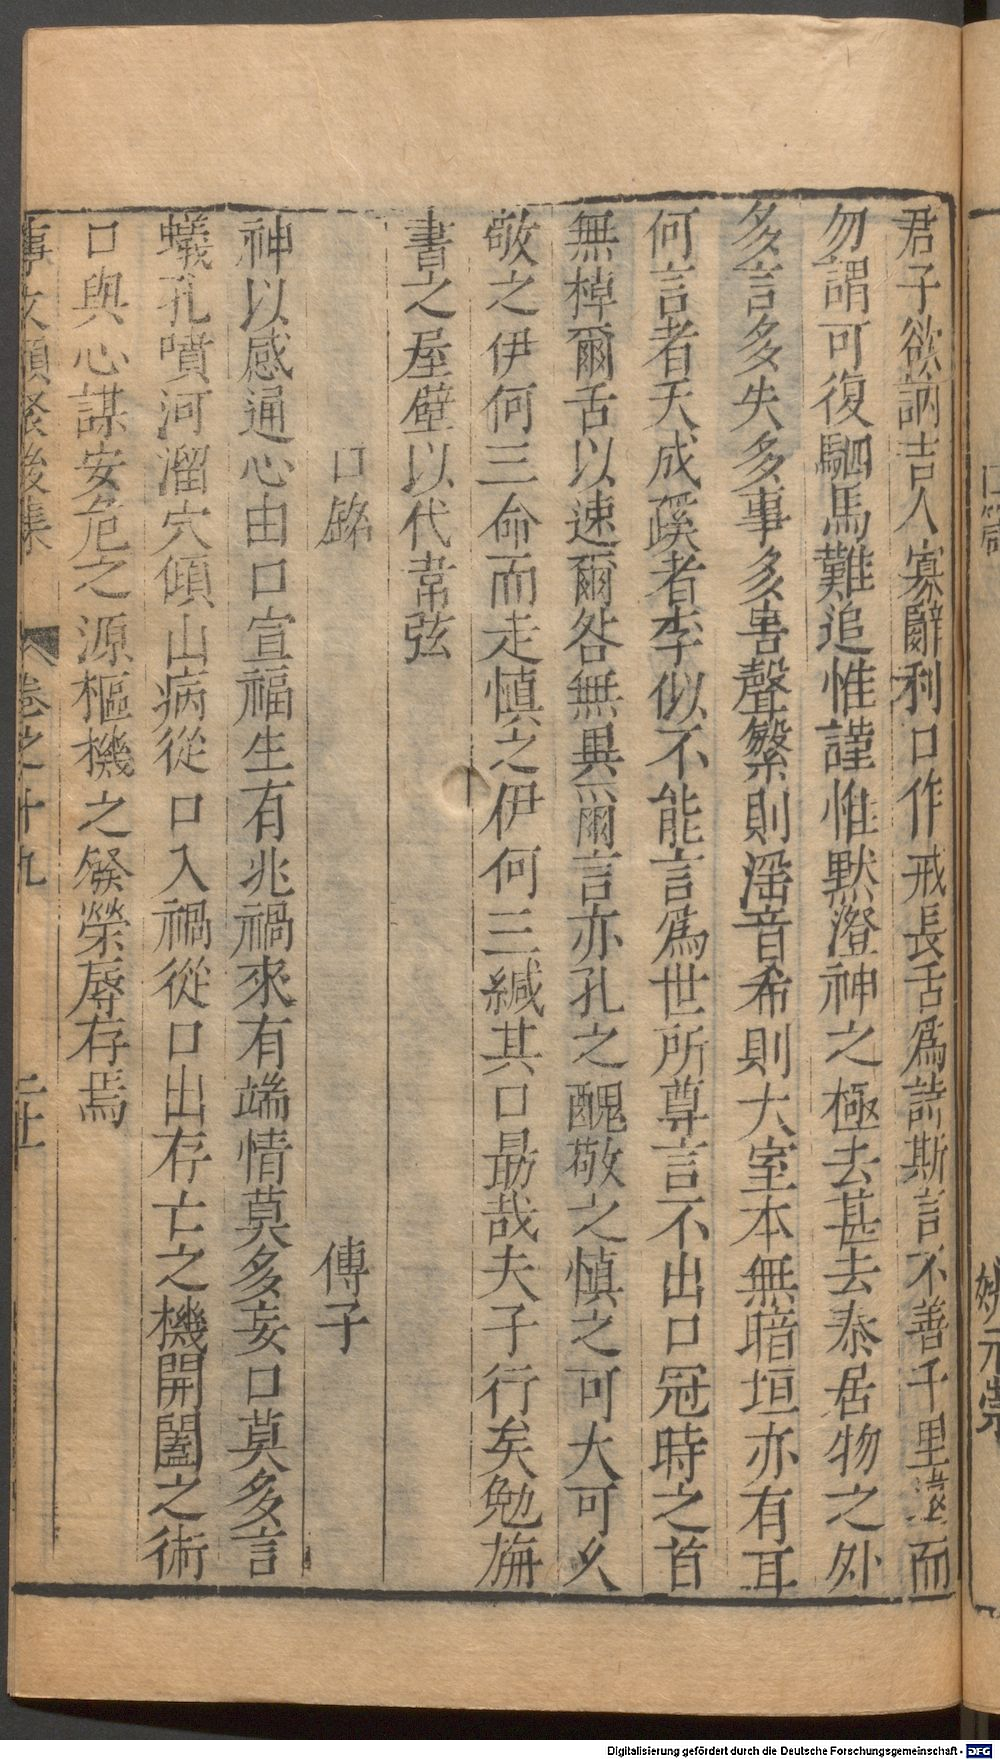 口箴
姚元崇
君子欲訥吉人寡辭利口作戒長舌爲詩斯言不善千里違而
勿謂可復駟馬難追惟謹惟默澄神之極去甚去泰居物之外
多言多失多事多害聲繁則淫音希則大室本無暗垣亦有耳
何言者天成蹊者李似不能言爲世所尊言不出口冠時之首
無掉爾舌以速爾咎無異爾言亦孔之醜敬之慎之可大可久
敬之伊何三命而走慎之伊何三緘其口勗哉夫子行矣勉旃
書之屋壁以代韋弦
口銘
傳子
神以感通心由口宣福生有兆禍來有端情莫多妄口莫多言
蟻孔噴河溜穴傾山病從口入禍從口出存亡之機開闔之術
口與心謀安危之源樞機之發榮辱存焉
事文類聚後集
卷之十九
二十
Digitalisierung gefördert durch die Deutsche Forschungsgemeinschaft - DFG